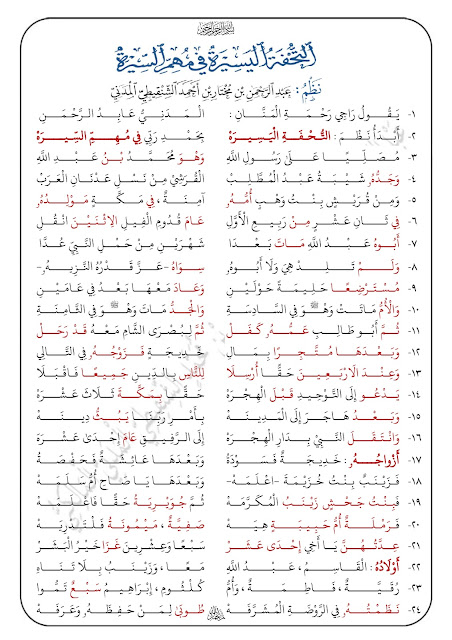 التُّحْفَةُ الْيَسِيرَةُ فِي مُهِمِّ السِّيرَةِ
نَظْمُ : عَبْدِ الرَّحْمَنِ بْنِ مُخْتَارِ بْنِ أَحْمَدَ الشِّنْقِيطِيِّ الْمَدَنِيِّ
١- يَقُولُ رَاجِي رَحْمَةِ الْمَنَّانِ : الْمَدَنِيُّ عَابِدُ الرَّحْمَنِ
٢- أَبْدَأُ نَظْمَ : التُّحْفَةِ الْيَسِيرَهْ بِحَمْدِ رَبِّي فِي مُهِمِّ السِّيرَهْ
٣- مُصَلِّيًا عَلَى رَسُولِ اللهِ وَهْوَ مُحَمَّدُ بْنُ عَبْدِ اللهِ
٤- وَجَدُّهُ شَيْبَةُ عَبْدُ الْمُطَّلِبْ الْقُرَشِيْ مِنْ نَسْلِ عَدْنَانِ الْعَرَبْ
٥- وَمِنْ قُرَيْشٍ بِنْتُ وَهْبٍ أُمُّهُ آمِنَةٌ ، فِي مَكَّةٍ مَوْلِدُهُ
٦- فِي ثَانِ عَشْرٍ مِنْ رَبِيعِ الْأَوَّلِ عَامَ قُدُومِ الْفِيلِ الِاثْنَيْنِ انْقُلِ
٧- أَبُوهُ عَبْدُ اللهِ مَاتَ بَعْدَا شَهْرَيْنِ مِنْ حَمْلِ النَّبِيِّ عُدَّا
٨- وَلَمْ تَلِدْ هِيَ وَلَا أَبُوهُ سِوَاهُ -عَزَّ قَدْرُهُ النَّزِيهُ-
٩- مُسْتَرْضَعًا حَلِيمَةً حَوْلَيْنِ وَعَادَ مَعْهَا بَعْدُ فِي عَامَيْنِ
١٠- وَالْأُمُّ مَاتَتْ وَهْوَ ﷺ فِي السَّادِسَةِ وَالْجَدُّ مَاتَ وَهْوَ ﷺ فِي الثَّامِنَةِ
١١- ثُمَّ أَبُو طَالِبِ عَمُّهُ كَفَلْ ثُمَّ لِبُصْرَى الشَّامِ مَعْهُ قَدْ رَحَلْ
١٢- وَبَعْدَهَا مُتَّجِرًا بِمَالِ خَدِيجَةٍ فَزَوْجُهُ فِي التَّالِي
١٣- وَعِنْدَ الَارْبَعِينَ حَقًّا أُرْسِلَا لِلنَّاسِ بِالدِّينِ جَمِيعًا فَاقْبَلَا
١٤- يَدْعُو إِلَى التَّوْحِيدِ قَبْلَ الْهِجْرَهْ حَقًّا بِمَكَّةٍ ثَلَاثَ عَشْرَهْ
١٥- وَبَعْدُ هَاجَرَ إِلَى الْمَدِينَهْ بِأَمْرِ رَبِّنَا يَبُثُّ دِينَهْ
١٦- وَانْتَقَلَ النَّبِيْ بِدَارِ الْهِجْرَهْ إِلَى الرَّفِيقِ عَامَ إِحْدَى عَشْرَهْ
١٧- أَزْوَاجُهُ : خَدِيجَةٌ فَسَوْدَةُ وَبَعْدَهَا عَائِشَةٌ فَحَفْصَةُ
١٨- فَزَيْنَبٌ بِنْتُ خُزَيْمَةَ -اعْلَمَهْ- وَبَعْدَهَا يَا صَاحِ أُمُّ سَلَمَهْ
١٩- فَبِنْتُ جَحْشٍ زَيْنَبُ الْمُكَرَّمَهْ ثُمَّ جُوَيْرِيَةُ حَقًّا فَاعْلَمَهْ
٢٠- فَرَمْلَةٌ أُمُّ حَبِيبَةٍ هِيَهْ صَفِيَّةٌ ، مَيْمُونَةٌ فَلْتَدْرِيَهْ
٢١- عِدَّتُهُنَّ يَا أَخِي إِحْدَى عَشَرْ سَبْعًا وَعِشْرِينَ غَزَا خَيْرُ الْبَشَرْ
٢٢- أَوْلَادُهُ : الْقَاسِمُ ، عَبْدُ اللهِ مَعًا ، وَزَيْنَبُ بِلَا تَنَاهِ
٢٣- رُقَيَّةٌ ، فَاطِمَةٌ ، وَأُمُّ كُلْثُومٍ ، إِبْرَاهِيمُ سَبْعٌ تَمُّوا
٢٤- نَظَمْتُهُ فِي الرَّوْضَةِ الْمُشَرَّفَهْ طُوبَى لِمَنْ حَفِظَهُ وَعَرَفَهْ